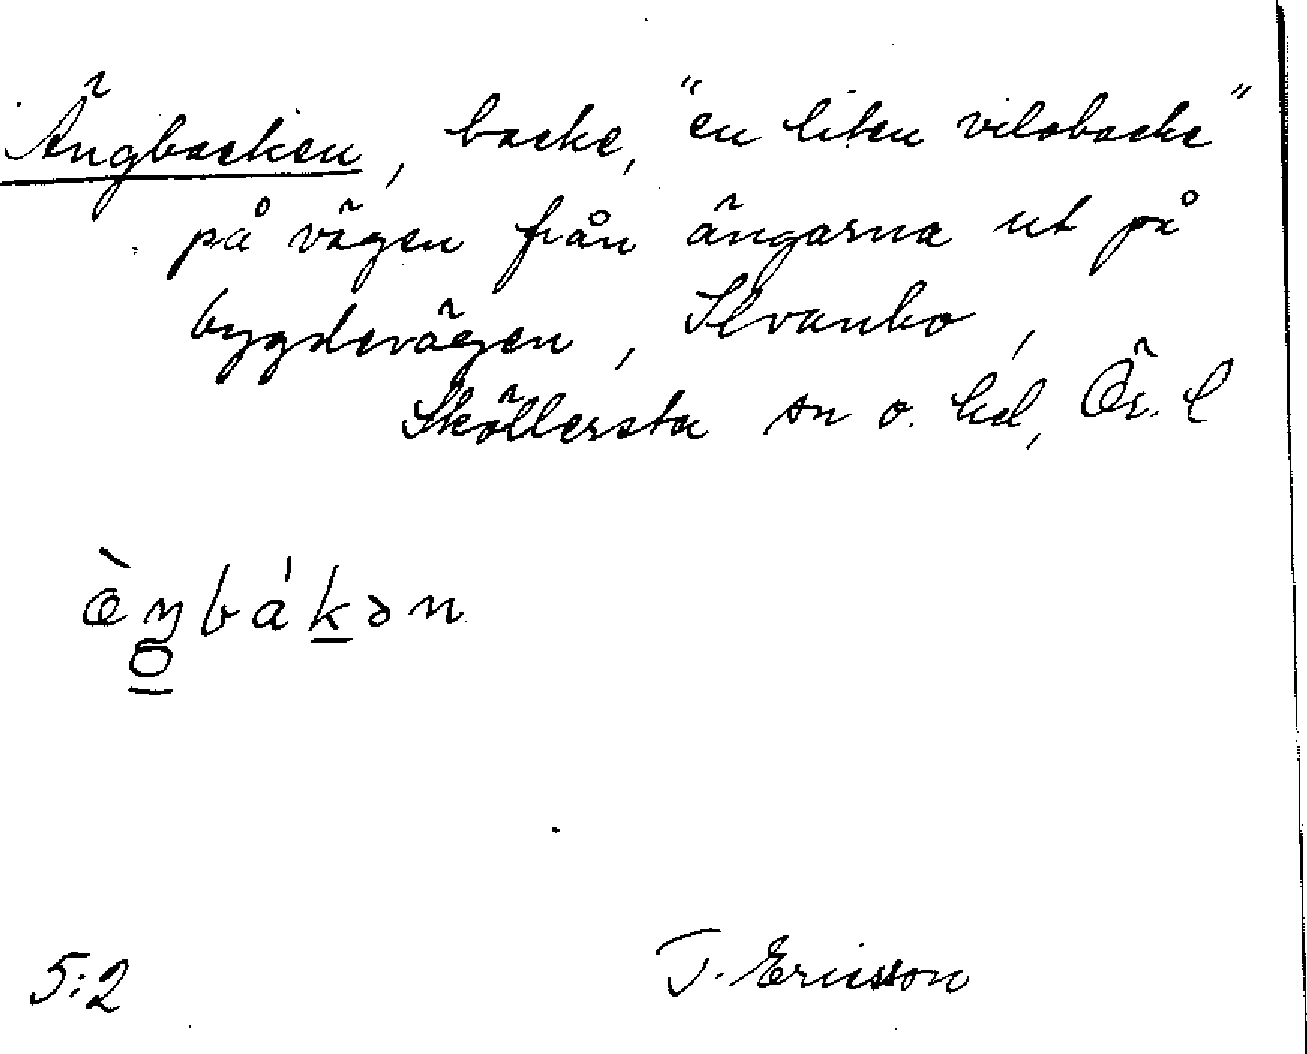 Ängbacken, backe, "en liten vilobacke"
på vägen från ängarna ut på
bygdevägen, Ilvanbo,
Sköllersta sn o. hd, Ör. l
5:2
T. Ericsson